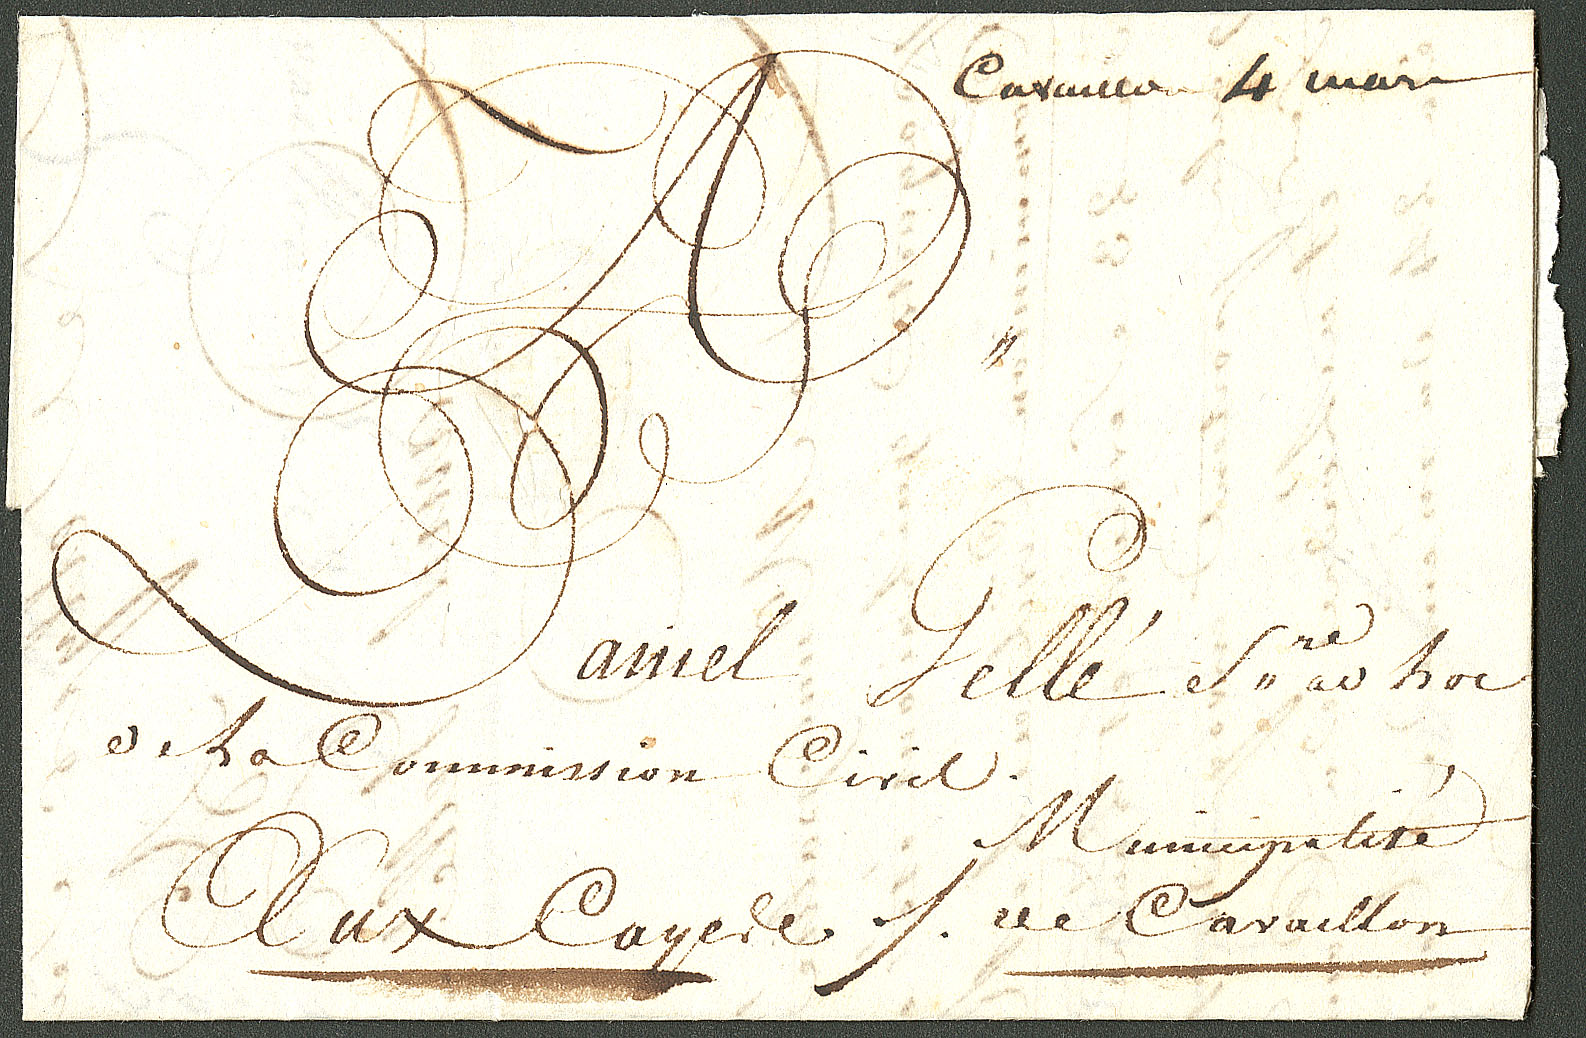 Cavaillon 4 mars
A
Daniel Gellé S.re ad hoc
de la Commission Civil.
Municipalité
Aux Cayes. de Cavaillon